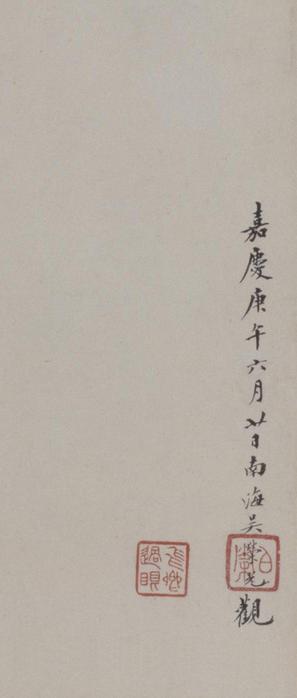 嘉慶庚午六月廿日南海吳榮光觀
過眼